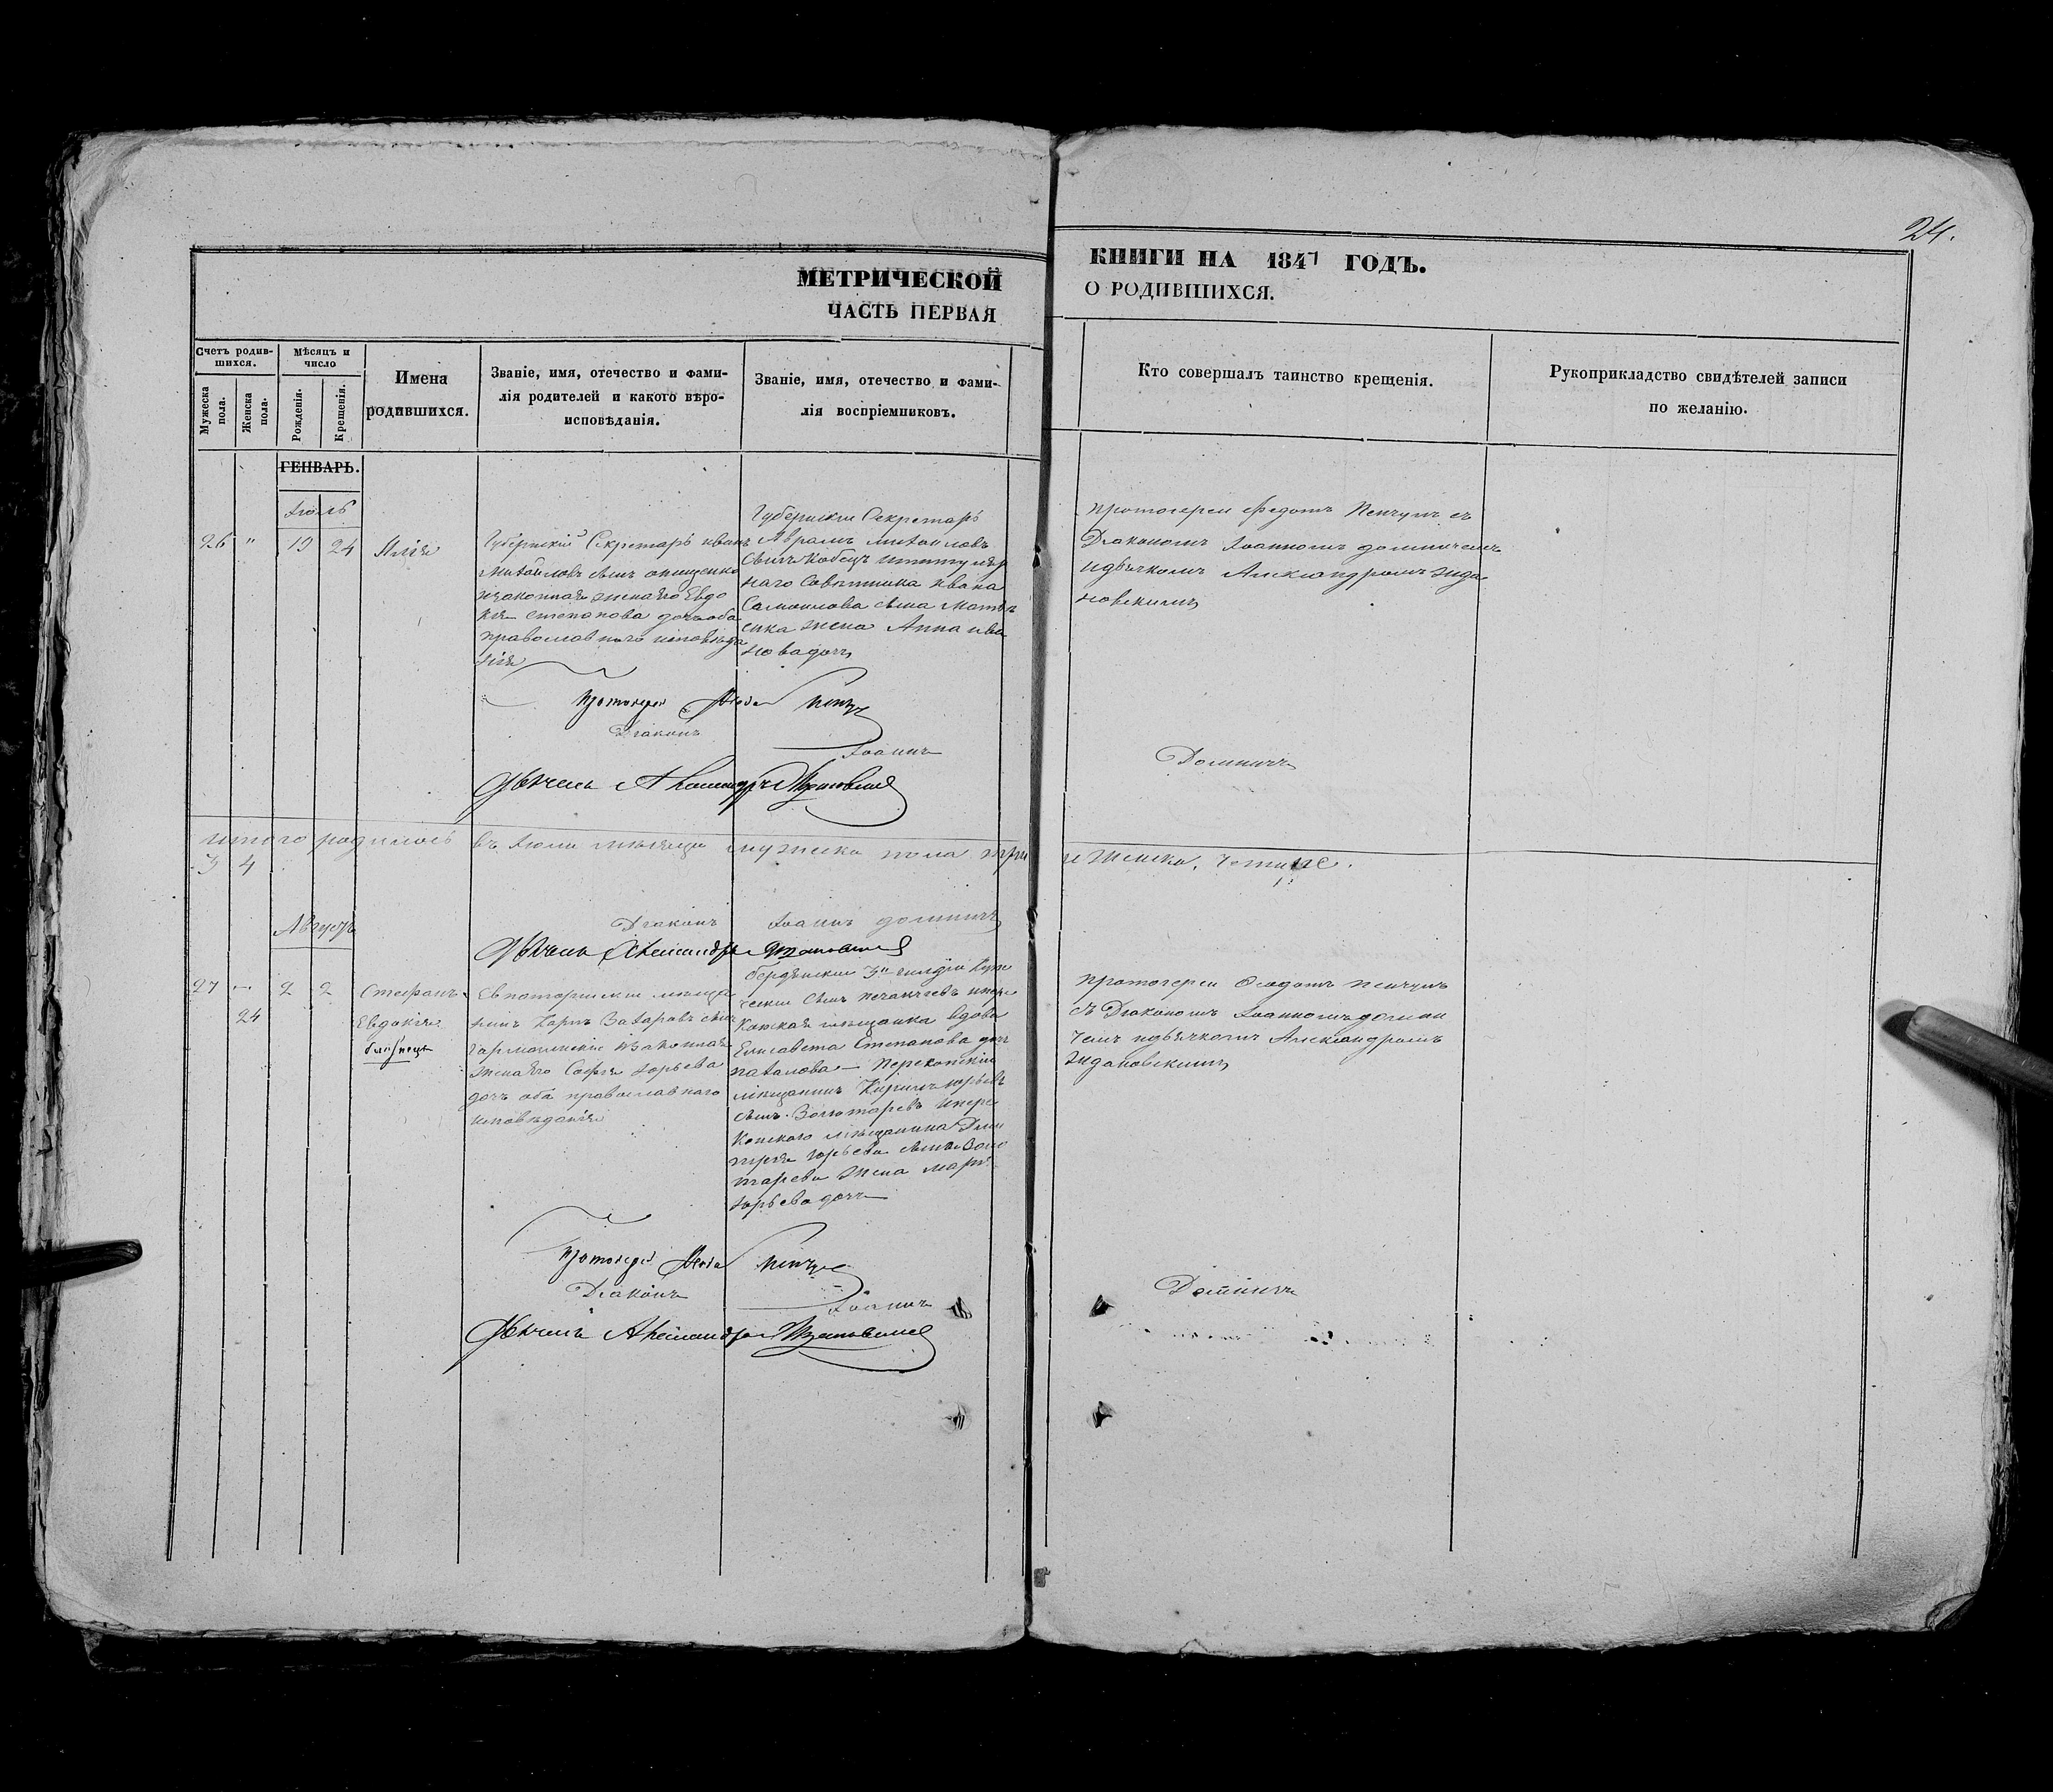 24.
МЕТРИЧЕСКОЙ КНИГИ НА 1847 ГОДЪ.
ЧАСТЬ ПЕРВАЯ О РОДИВШИХСЯ.
Счетъ родив-
шихся.
Мужеска пола.
Женска пола.
Мѣсяцъ и
число
Рожденія.
Крещенія.
Имена
родившихся.
Званіе, имя, отечество и фами-
лія родителей и какого вѣро-
исповѣданія.
Званіе, имя, отечество и фами-
лія воспріемниковъ.
Кто совершалъ таинство крещенія.
Рукоприкладство свидѣтелей записи
по желанію.
ГЕНВАРЬ.
Іюль
26 " 19 24 Илія
Губернскій Секретарь Иванъ
Михайловъ сынъ Онищенко
изаконная жена его Евдо
кія Степанова дочь оба
православнаго исповѣда
нія
Губернскій Секретарь
Аврамъ Михайловъ
сынъ Кобецъ ититуляр
наго Совѣтника Ивана
Самоилова сына
жена Анна Ива
нова дочь
Протоіерей Федотъ Пенчулъ съ
Діакономъ Іоанномъ Доминичемъ
идьячкомъ Александромъ Жда
новскимъ
Протоіерей
Діаконъ Іоаннъ Доминичъ
Дьячекъ Александръ Ждановскій
Итого родилось въ Іюли мѣсяцѣ мужска пола три и женска, четыре.
3 4
Августъ
Діаконъ Іоаннъ Доминичъ
Дьячекъ Александръ Ждановскій
27 — 2 2 Стефанъ
24 Евдокія
близнецы
Евпаторійскій мѣща
нинъ Карпъ Захаровъ сынъ
изаконная
жена его Софія Юрьева
дочь оба православнаго
исповѣданія
Бердянскій 3й гильдіи Купе
ческій сынъ ипере
копская мѣщанка вдова
Елисавета Степанова дочь
Перекопскій
мѣщанинъ Юрьевъ
сынъ Золотаревъ ипере
копскаго мѣщанина Дми
трія Юрьева сына Золо
тарева жена Марія
Юрьева дочь
Протоіерей Федотъ Пенчулъ
съ Діакономъ Іоанномъ Домини
чемъ идьячкомъ Александромъ
Ждановскимъ
Протоіерей
Діаконъ Іоаннъ Доминичъ
Дьячекъ Александръ Ждановскій